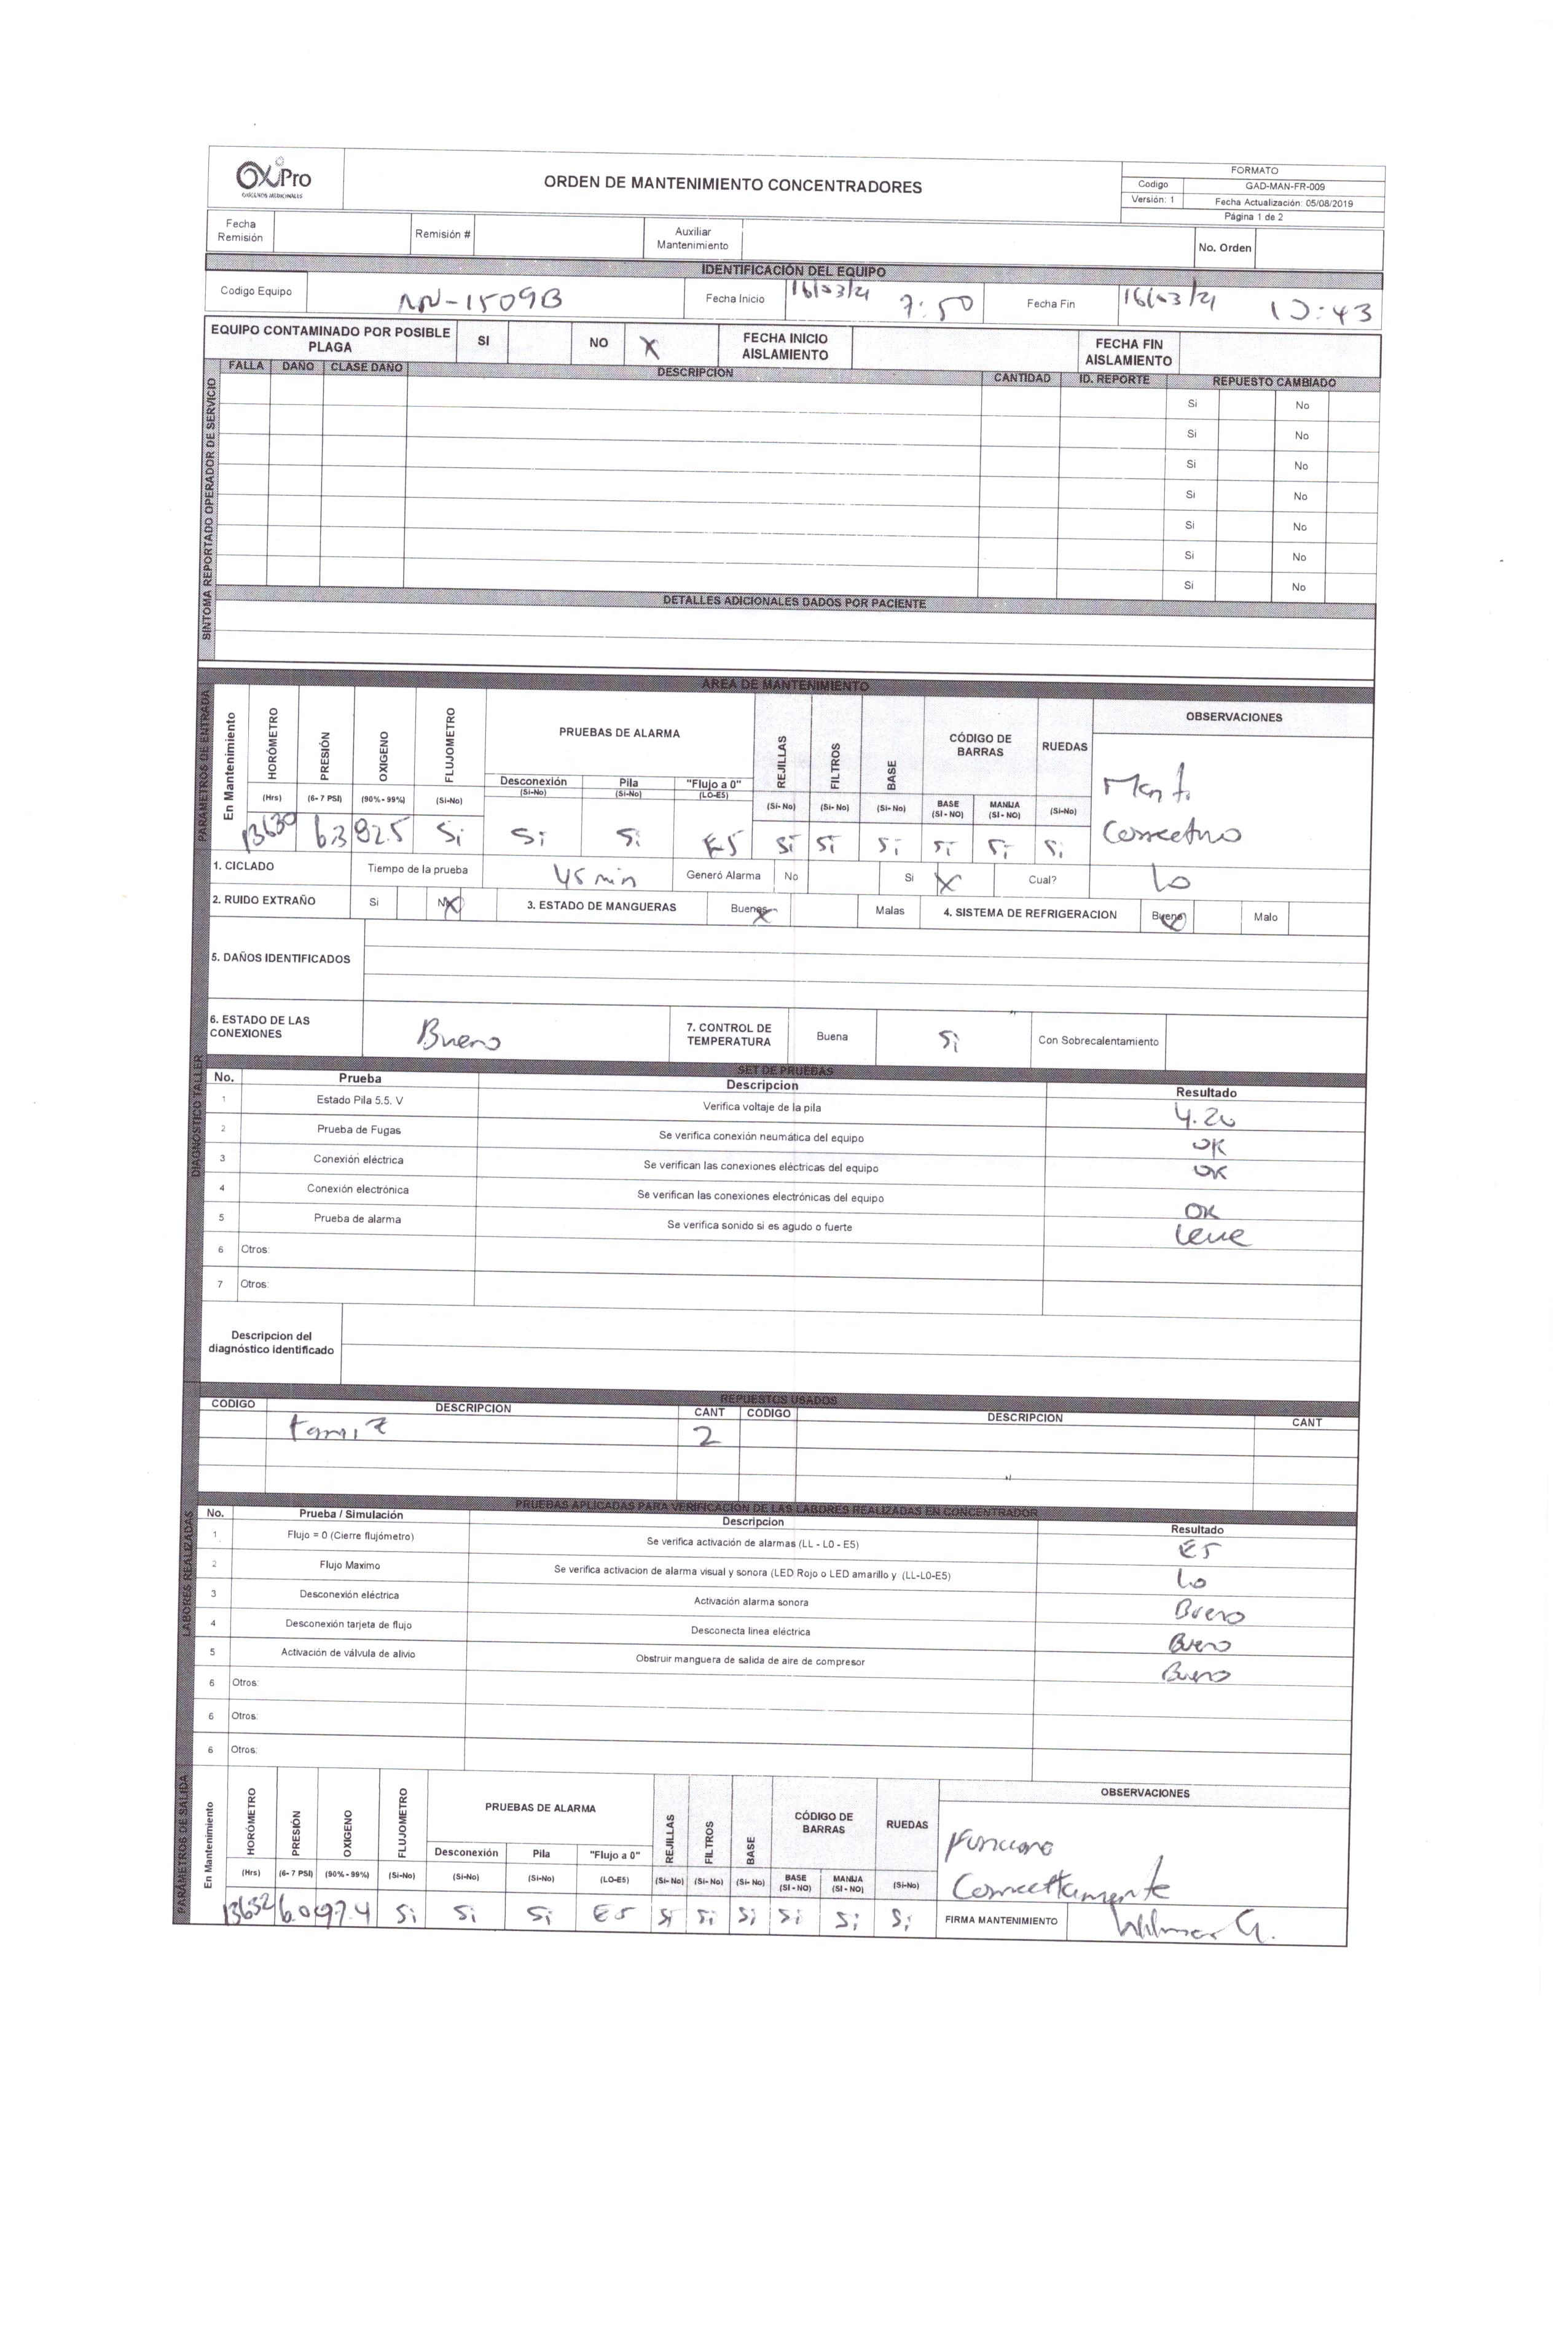 OxiPro
OXÍGENOS MEDICINALES
ORDEN DE MANTENIMIENTO CONCENTRADORES
FORMATO
Codigo GAD-MAN-FR-009
Versión: 1 Fecha Actualización: 05/08/2019
Página 1 de 2
Fecha Remisión Remisión # Auxiliar Mantenimiento No. Orden
IDENTIFICACIÓN DEL EQUIPO
Codigo Equipo NN-1509B Fecha Inicio 16/03/21 7:50 Fecha Fin 16/03/21 :43
EQUIPO CONTAMINADO POR POSIBLE PLAGA SI NO X FECHA INICIO AISLAMIENTO FECHA FIN AISLAMIENTO
SINTOMA REPORTADO OPERADOR DE SERVICIO
FALLA DAÑO CLASE DAÑO DESCRIPCIÓN CANTIDAD ID. REPORTE REPUESTO CAMBIADO
Si No
Si No
Si No
Si No
Si No
Si No
Si No
DETALLES ADICIONALES DADOS POR PACIENTE
AREA DE MANTENIMIENTO
PARÁMETROS DE ENTRADA
En Mantenimiento HORÓMETRO PRESIÓN OXIGENO FLUJOMETRO PRUEBAS DE ALARMA REJILLAS FILTROS BASE CÓDIGO DE BARRAS RUEDAS OBSERVACIONES
Desconexión Pila "Flujo a 0"
(Hrs) (6- 7 PSI) (90% - 99%) (Si-No) (Si-No) (Si-No) (LO-E5) (Si- No) (Si- No) (Si- No) BASE (SI - NO) MANIJA (SI - NO) (Si-No)
13630 6.3 92.5 Si Si Si E5 Si Si Si Si Si Si
Mant.
Correctivo
1. CICLADO Tiempo de la prueba 45 min Generó Alarma No Si X Cual? Lo
2. RUIDO EXTRAÑO Si No X 3. ESTADO DE MANGUERAS Buenas X Malas 4. SISTEMA DE REFRIGERACION Bueno X Malo
5. DAÑOS IDENTIFICADOS
6. ESTADO DE LAS CONEXIONES Bueno 7. CONTROL DE TEMPERATURA Buena Si Con Sobrecalentamiento
DIAGNOSTICO TALLER
SET DE PRUEBAS
No. Prueba Descripcion Resultado
1 Estado Pila 5.5. V Verifica voltaje de la pila 4.20
2 Prueba de Fugas Se verifica conexión neumática del equipo OK
3 Conexión eléctrica Se verifican las conexiones eléctricas del equipo OK
4 Conexión electrónica Se verifican las conexiones electrónicas del equipo OK
5 Prueba de alarma Se verifica sonido si es agudo o fuerte leve
6 Otros:
7 Otros:
Descripcion del diagnóstico identificado
REPUESTOS USADOS
CODIGO DESCRIPCION CANT CODIGO DESCRIPCION CANT
tamiz 2
LABORES REALIZADAS
PRUEBAS APLICADAS PARA VERIFICACIÓN DE LAS LABORES REALIZADAS EN CONCENTRADOR
No. Prueba / Simulación Descripcion Resultado
1 Flujo = 0 (Cierre flujómetro) Se verifica activación de alarmas (LL - L0 - E5) E5
2 Flujo Maximo Se verifica activacion de alarma visual y sonora (LED Rojo o LED amarillo y (LL-L0-E5) Lo
3 Desconexión eléctrica Activación alarma sonora Bueno
4 Desconexión tarjeta de flujo Desconecta linea eléctrica Bueno
5 Activación de válvula de alivio Obstruir manguera de salida de aire de compresor Bueno
6 Otros:
6 Otros:
6 Otros:
PARÁMETROS DE SALIDA
En Mantenimiento HORÓMETRO PRESIÓN OXIGENO FLUJOMETRO PRUEBAS DE ALARMA REJILLAS FILTROS BASE CÓDIGO DE BARRAS RUEDAS OBSERVACIONES
Desconexión Pila "Flujo a 0"
(Hrs) (6- 7 PSI) (90% - 99%) (Si-No) (Si-No) (Si-No) (LO-E5) (Si- No) (Si- No) (Si- No) BASE (SI - NO) MANIJA (SI - NO) (Si-No)
13632 6.0 97.4 Si Si Si E5 Si Si Si Si Si Si
Funciona
Correctamente
FIRMA MANTENIMIENTO Wilmar G.